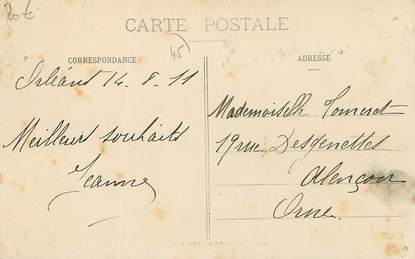 20 €
CARTE POSTALE
CORRESPONDANCE
ADRESSE
45
Orléans 14. 8. 11
Meilleurs souhaits
Jeanne
Mademoiselle
19 rue Desgenettes
Alençon
Orne.